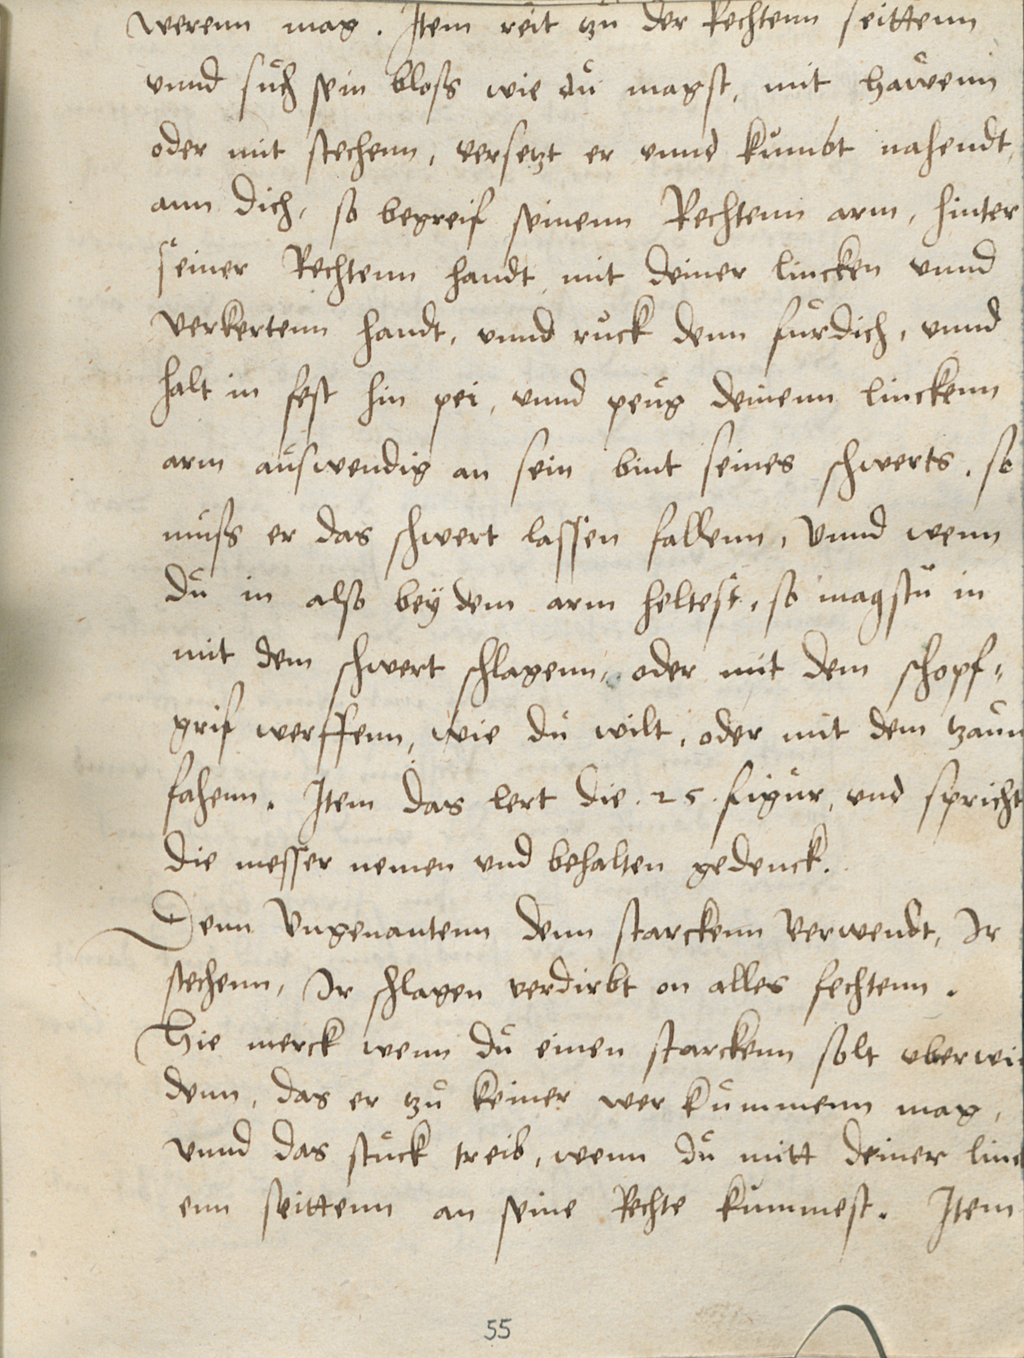 werenn mag. Item reit zu der Rechtenn seittenn
vnnd such sein bloss wie du magst, mit hawenn
oder mit stechenn, versetzt er vnnd kumbt nahendt,
ann dich, so begreif seinenn Rechtenn arm, hinter
seiner Rechtenn handt mit deiner lincken vnnd
verkertenn handt, vnnd ruck denn fur dich, vnnd
halt in fest hin pei, vnnd peug deinenn linckenn
arm auswendig an sein bint seines schwerts. so
muss er das schwert lassen fallenn, Vnnd wenn
du in also bey dem arm heltest, so magstu in
mit dem schwert schlagenn, oder mit dem schopf=
grif werffenn, wie du wilt, oder mit dem tzaun
fahenn. Item das lert die .25. figur, vnd spricht
die messer nemen vnd behalten gedenck.
Denn Vngenantenn denn starckenn verwendt, Ir
stechenn, Ir schlagen verdirbt on alles fechtenn.
Hie merck wenn du einen starckenn solt vberwin
denn, das er tzu keiner wer kummenn mag,
vnnd das stuck treib, wenn du mitt deiner linck
enn seittenn an seine Rechte kummest. Item
55